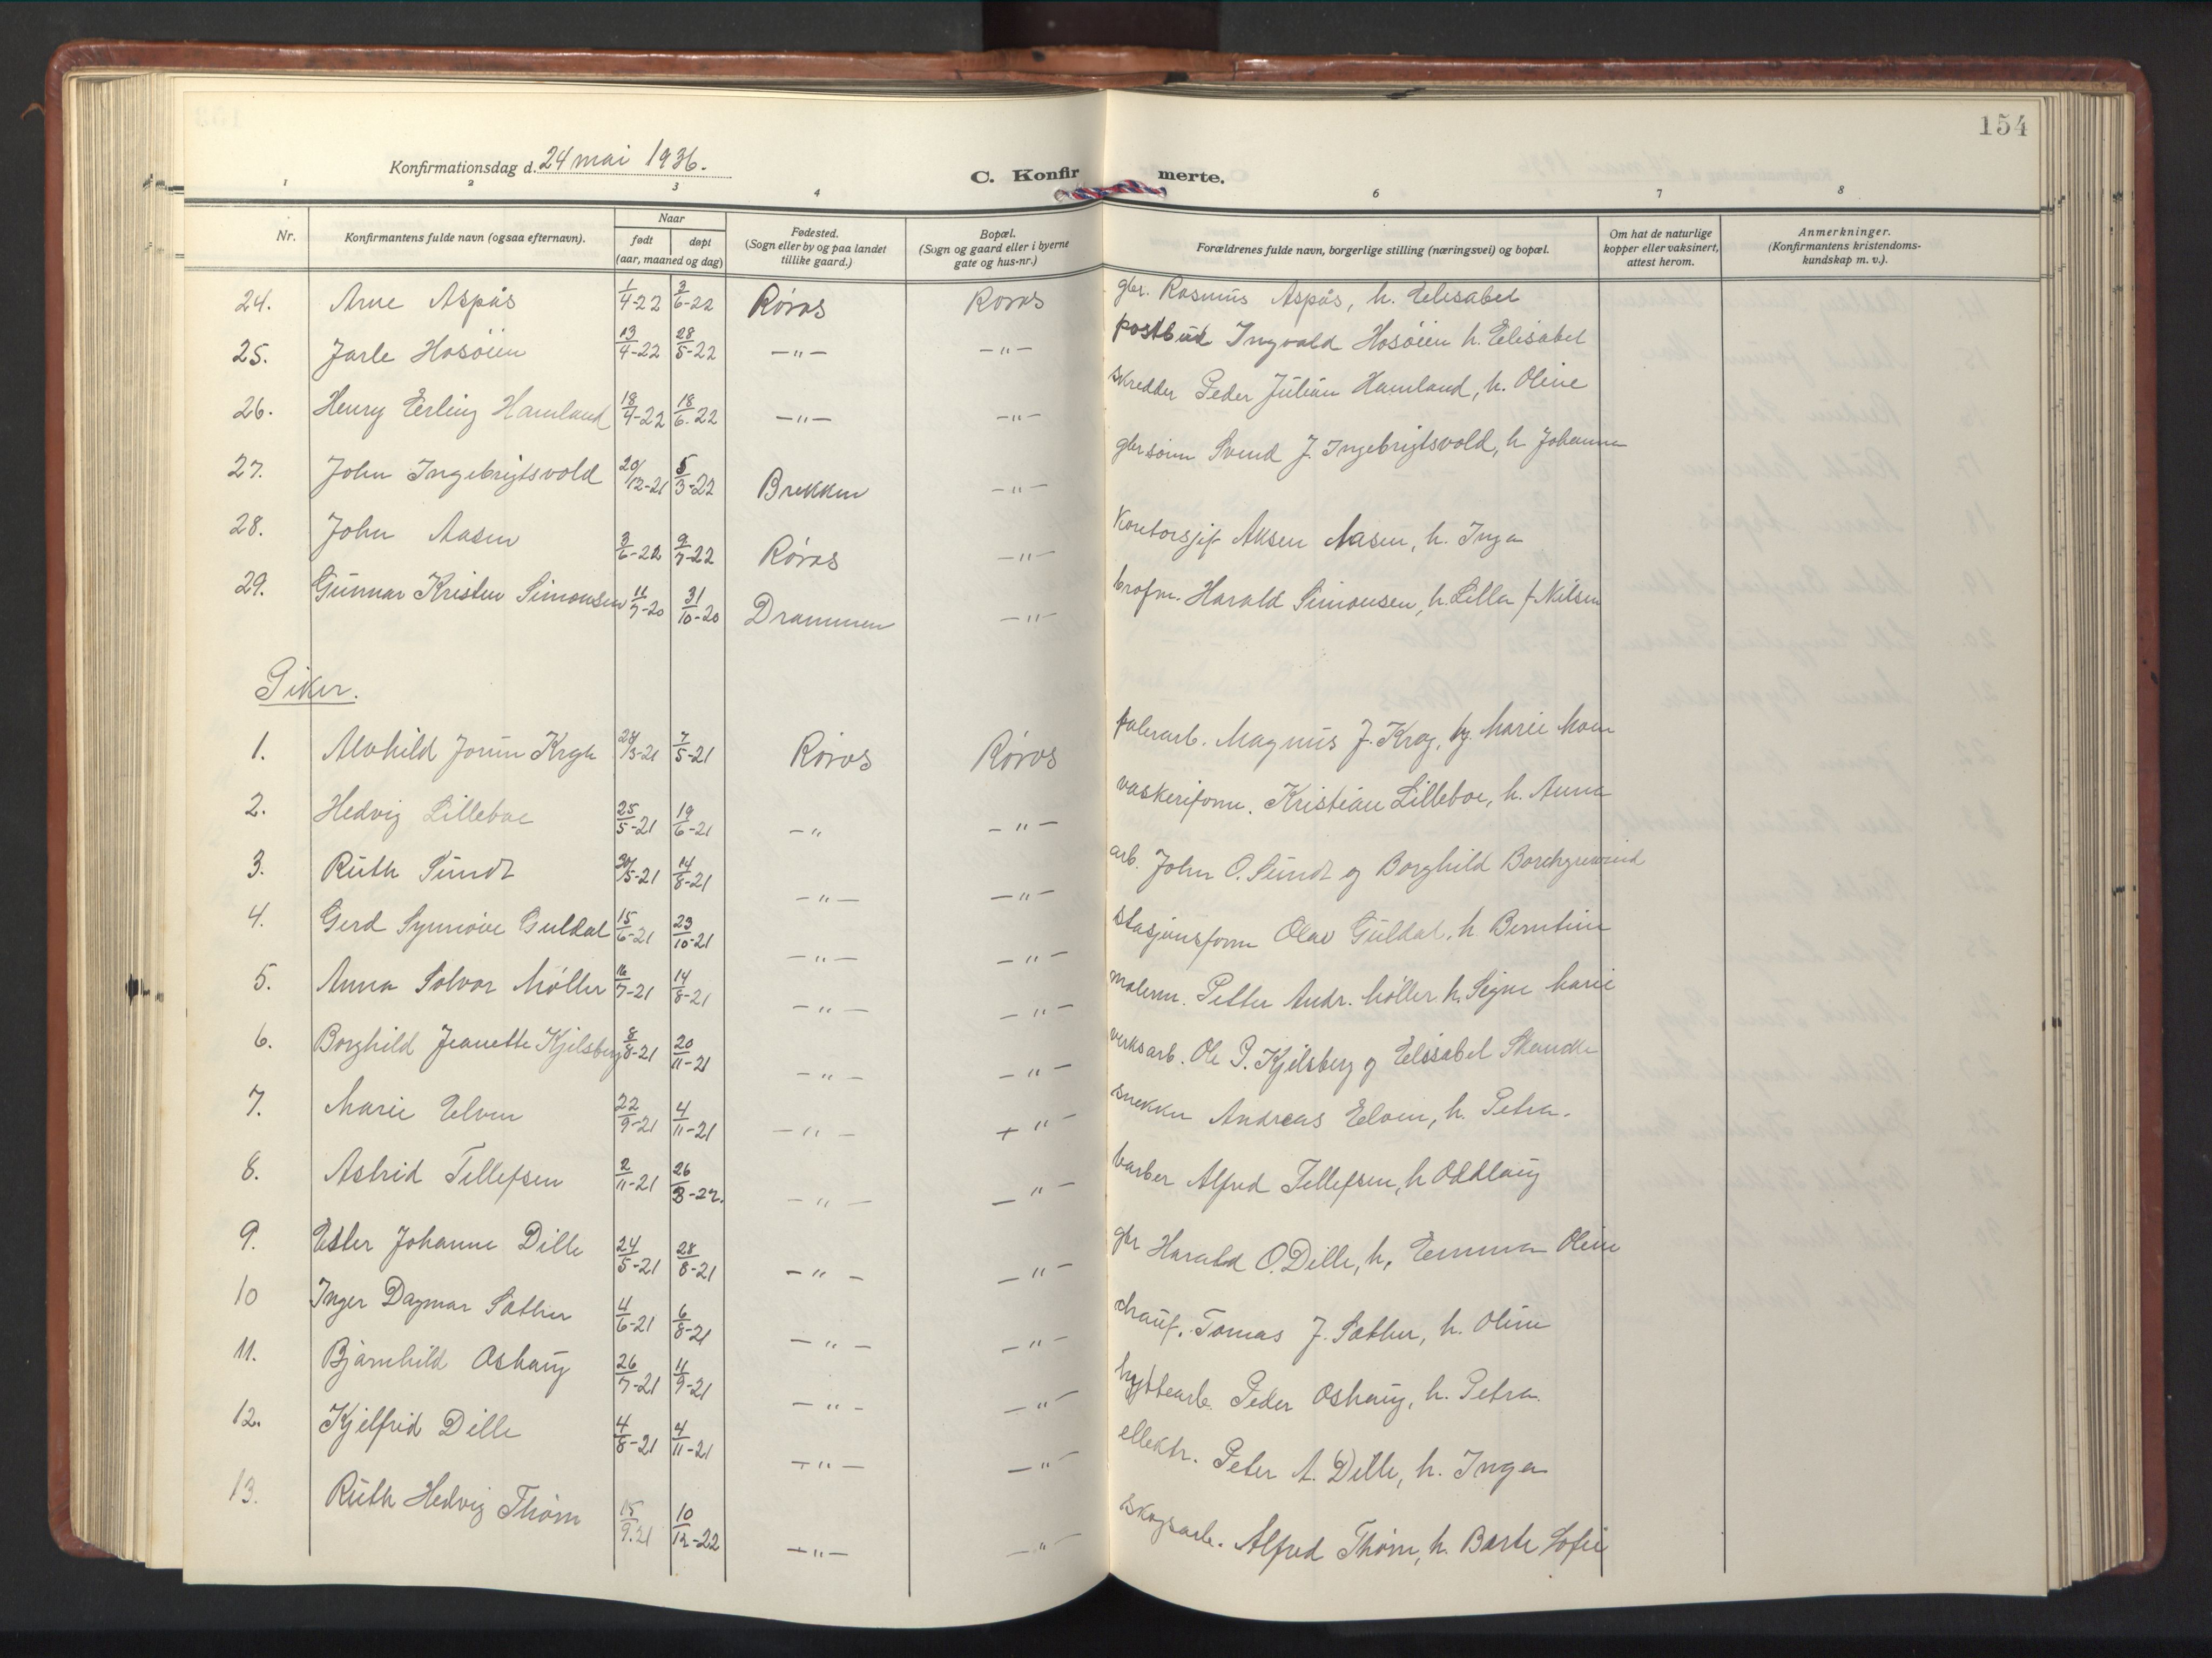 154
Konfirmationsdag d. 24 mai 1936.
C. Konfirmerte.
1 2 3 4 6 7 8
Nr. Konfirmantens fulde navn (ogsaa efternavn). Naar født døpt (aar, maaned og dag) Fødested. (Sogn eller by og paa landet tillike gaard.) Bopæl. (Sogn og gaard eller i byerne gate og hus-nr.) Forældrenes fulde navn, borgerlige stilling (næringsvei) og bopæl. Om hat de naturlige kopper eller vaksinert, attest herom. Anmerkninger. (Konfirmantens kristendoms-kundskap m. v.).
24. Arne Aspås 1/4-22 3/6-22 Røros Røros gbr. Rasmus Aspås, h. Elisabet
25. Jarle Hosøien 13/4-22 28/5-22 -"- -"- postbud Ingvald Hosøien h. Elisabet
26. Henry Erling Hamland 18/4-22 18/6-22 -"- -"- skredder Peder Julian Hamland, h. Oline
27. John Ingebrigtsvold 20/12-21 5/3-22 Brekken -"- gbrsønn Svend J. Ingebrigtsvold, h Johanna
28. John Aasen 3/6-22 9/7-22 Røros -"- Aksen Aasen, h. Inga
29. Gunnar Kristen Simonsen 11/7-20 31/10-20 Drammen -"- brofm. Harald Simonsen, h. Lilla f Nilsen
Piker.
1. Alvhild Jorun Krog 28/3-21 7/5-21 Røros Røros Magnus J. Krog, og Marie Moen
2. Hedvig Lilleboe 25/5-21 19/6-21 -" -"- vaskeriform. Kristian Lilleboe, h. Anna
3. Ruth Sundt 30/5-21 14/8-21 -"- -"- arb. John O. Sundt og Borghild Borchgrevink
4. Gerd Synnøve Guldal 15/6-21 23/10-21 -"- -"- stasjonsform Olav Guldal, h. Berntine
5. Anna Solvor Møller 16/7-21 14/8-21 -"- -"- malerm. Petter Andr. Møller h. Signe Marie
6. Borghild Jeanette Kjelsberg 8/8-21 20/11-21 -"- -"- verksarb. Ole P. Kjelsberg og Elisabet Skancke
7. Marie Elven 22/9-21 4/11-21 -"- -"- snekker Andreas Elven, h. Petra.
8. Astrid Tellefsen 2/11-21 26/3-22. -"- -"- barber Alfred Tellefsen, h Oddlaug
9. Ester Johanne Dille 24/5-21 28/8-21 -"- -"- gbr Harald O. Dille, h. Emma Oline
10 Inger Dagmar Sæther 4/6-21 6/8-21 -"- -"- chauf. Tomas J. Sæther, h. Oline
11. Bjarnhild Oshaug 26/7-21 4/9-21 -"- -"- hyttearb. Peder Oshaug, h. Petra.
12. Kjelfrid Dille 4/8-21 4/11-21 -"- -"- ellektr. Peter A. Dille, h. Inga
13. Ruth Hedvig Thorn 15/9.21 10/12-22 -"- -"- skogsarb. Alfred Thorn, h. Barle Sofie